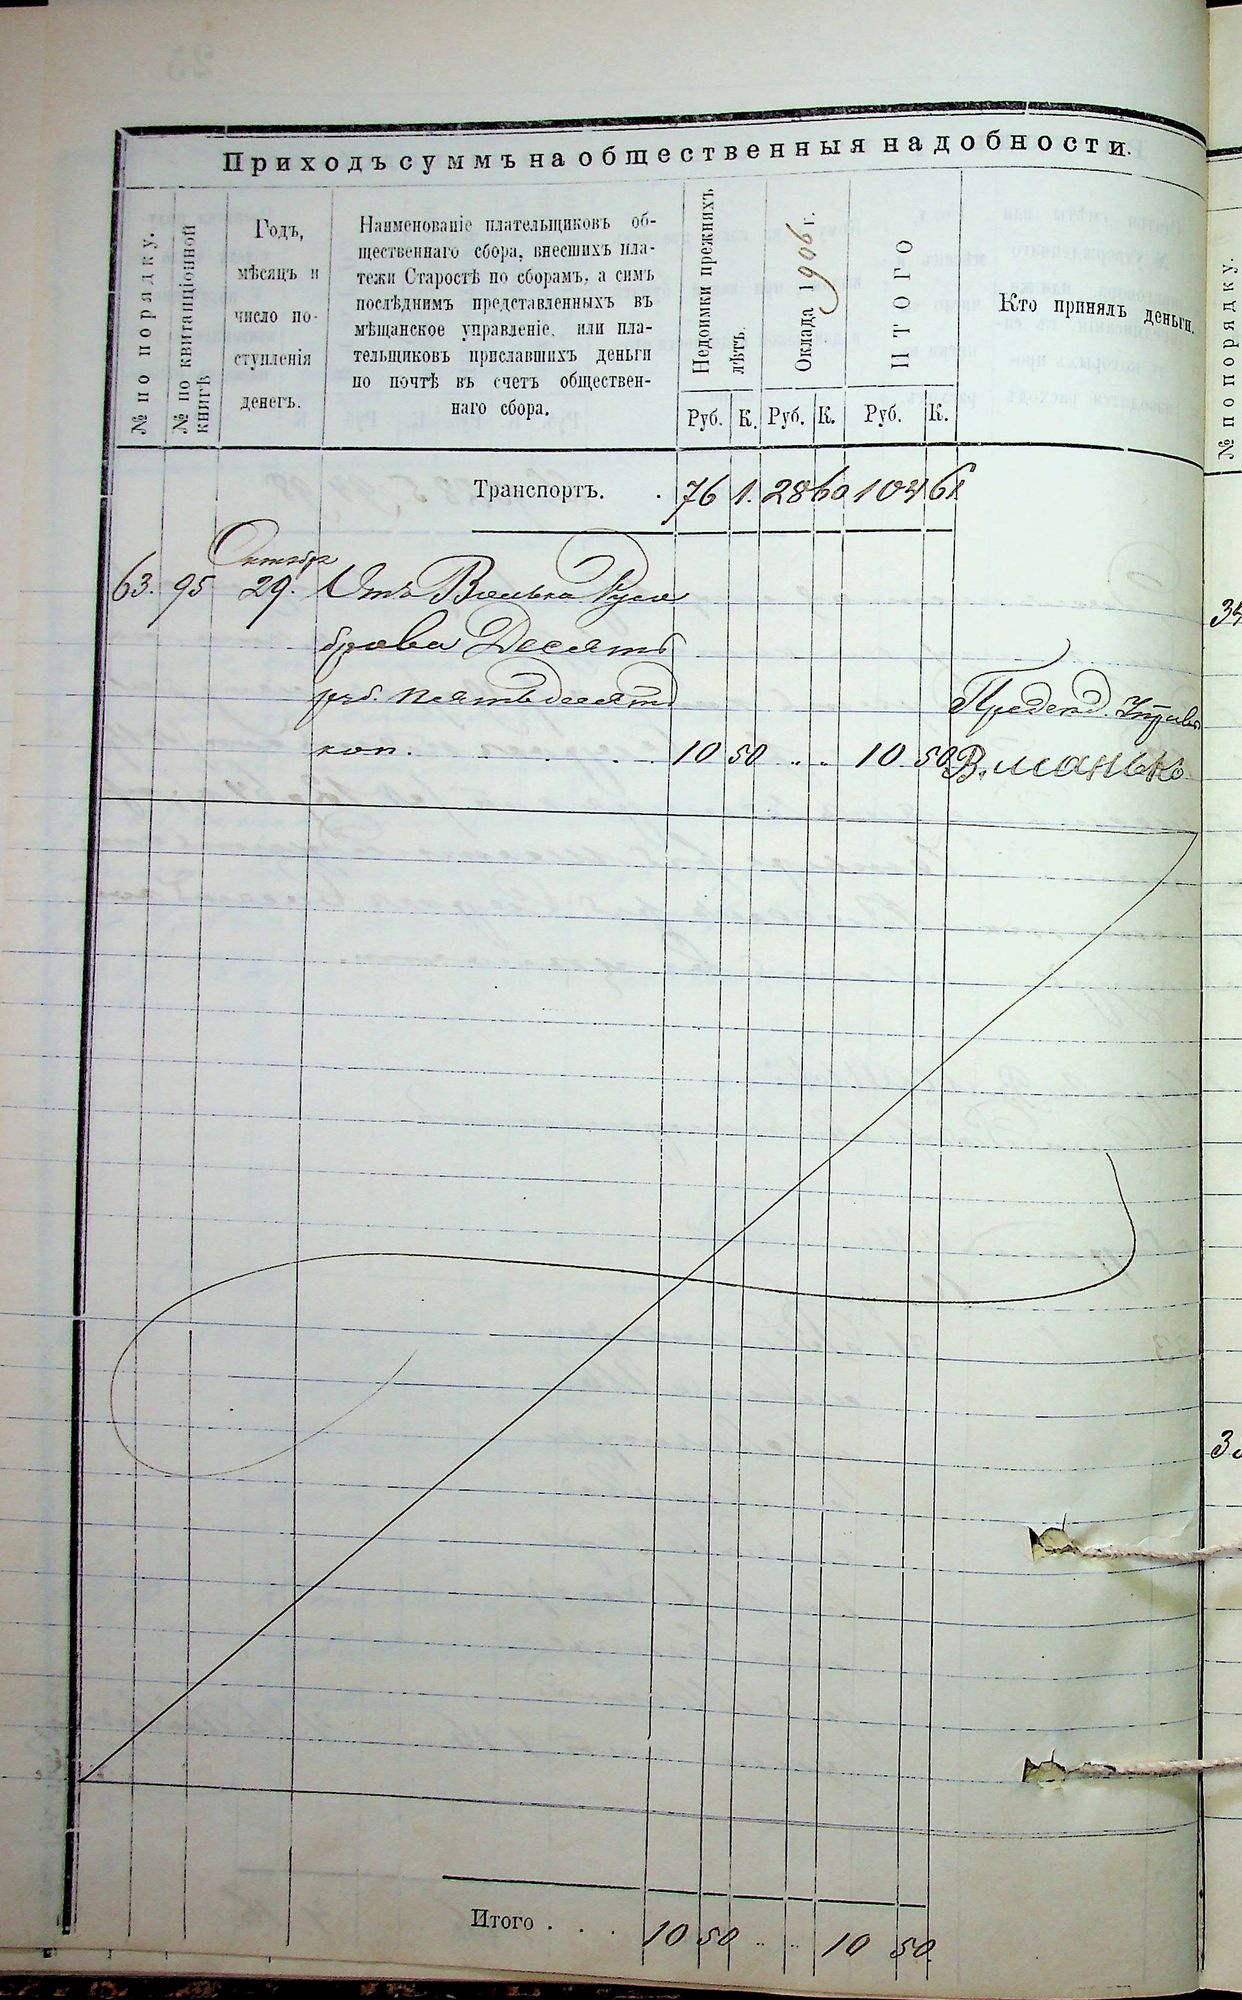 Приходъ суммъ на общественныя надобности.
№ по порядку.
№ по квитанціонной
книгѣ
Годъ,
мѣсяцъ и
число по-
ступленія
денегъ.
Наименованіе плательщиковъ об-
щественнаго сбора, внесшихъ пла-
тежи Старостѣ по сборамъ, а симъ
послѣднимъ представленныхъ въ
мѣщанское управленіе, или пла-
тельщиковъ приславшихъ деньги
по почтѣ въ счетъ обществен-
наго сбора.
Недоимки прежнихъ
лѣтъ.
Оклада 1906 г.
ИТОГО
Кто принялъ деньги.
Руб. К. Руб. К. Руб. К.
№ по порядку.
Транспортъ. . 76 1. 28 60 104 61
Октябр
63. 95 29. Отъ Вольки
Десять
руб. пятьдесятъ
коп. . . . . 10 50 .. .. 10 50
Председ. Управы
В. Манько
34
3
Итого . . . 10 50 .. .. 10 50